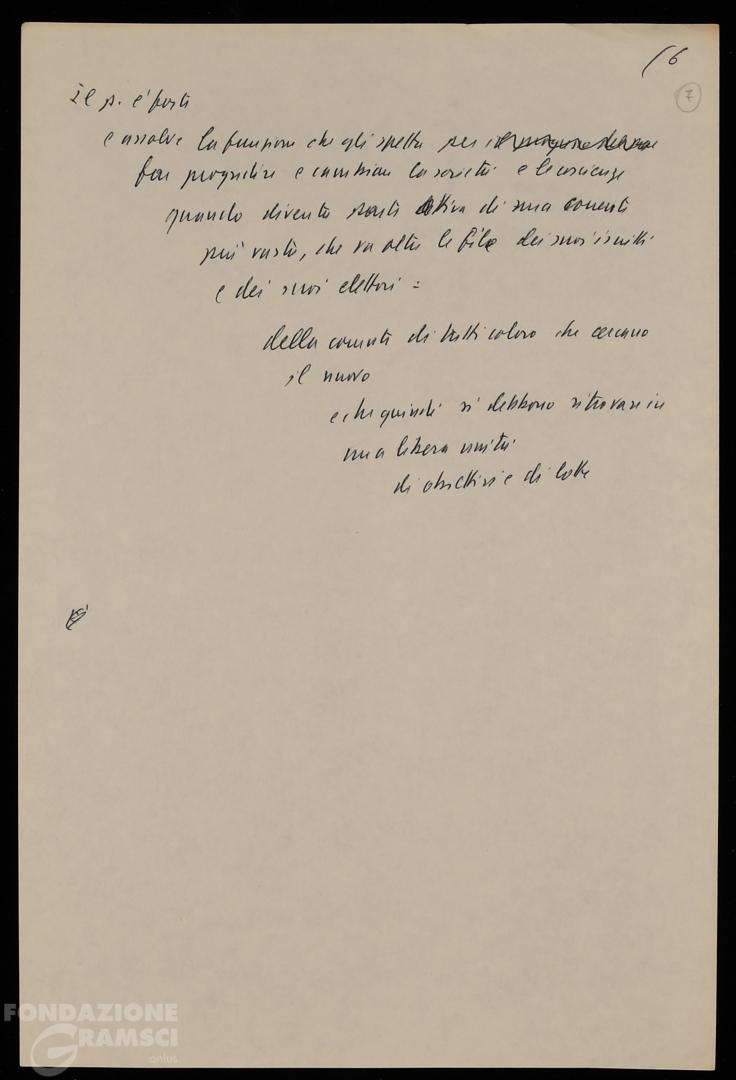 (6
7
Il p. è forte
e assolve la funzione che gli spetta per il
far progredire e cambiare la società e le coscienze
quando diventa parte attiva di una corrente
più vasta, che va oltre le file dei suoi iscritti
e dei suoi elettori =
della corrente di tutti coloro che cercano
il nuovo
e che quindi si debbono ritrovare in
una libera unità
di obiettivi e di lotte
FONDAZIONE
GRAMSCI
onlus